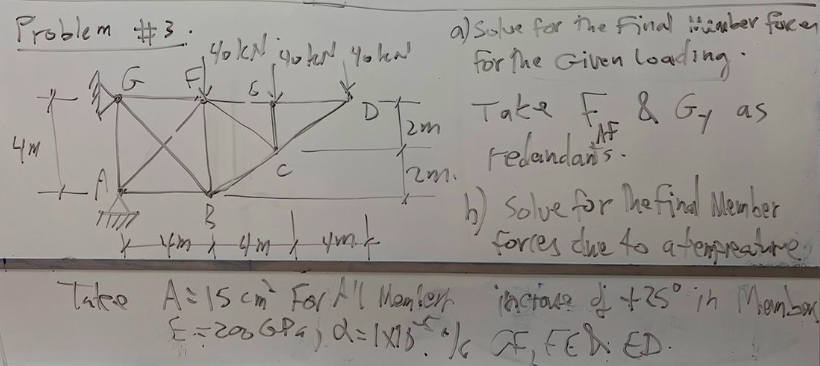 Problem #3.
a) Solve for the Final Member forces
for the Given loading.
Take F_AF & G_y as
redandants.
b) Solve for the final Member
forces due to a tempreature
increase of +25° in Member
GF, FE & ED.
40kN 40kN 40kN
G F E D
4m
2m
A C
2m.
B
4m 4m 4m
Take A = 15 cm² For All Members
E = 200 GPa, α = 1x10⁻⁵ /°C